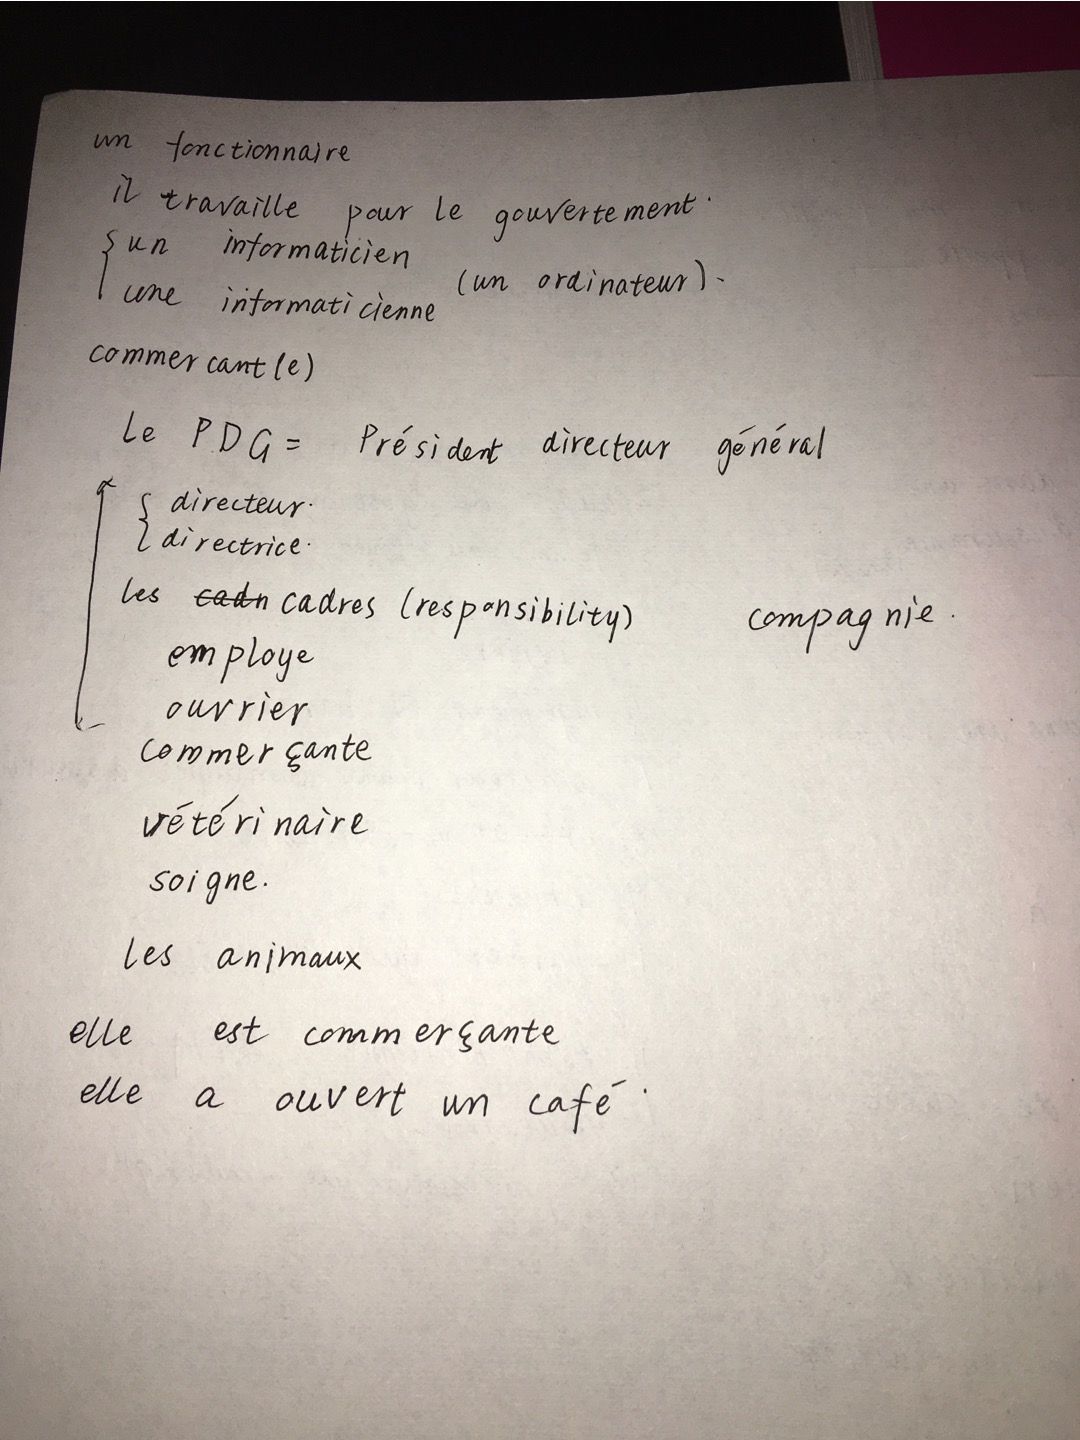 un fonctionnaire
il travaille pour le gouvertement.
un informaticien
(un ordinateur).
une informaticienne
commercant(e)
Le PDG = Président directeur général
directeur.
directrice.
les cadn cadres (responsibility) compagnie.
employe
ouvrier
commerçante
vétérinaire
soigne.
les animaux
elle est commerçante
elle a ouvert un café.